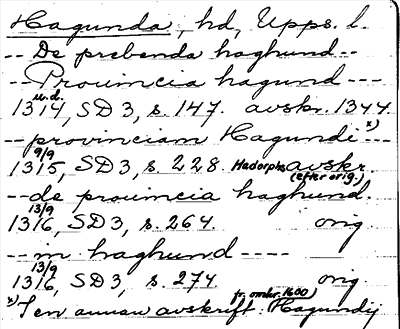 Hagunda, hd, Upps. l.
-- De prebenda haghund --
-- Prouincia hagund ---
1314, u.d. SD3, s. 147. avskr. 1344
-- provinciam Hagundi -- x)
1315, 9/9 SD3, s. 228. Hadorphs avskr. (efter orig)
-- de prouincia haghund.
1316, 13/9 SD3, s. 264. orig
-- in haghund ----
1316, 13/9 SD3, s. 274 orig
x) I en annan avskrift fr. omkr. 1600) Hagundij